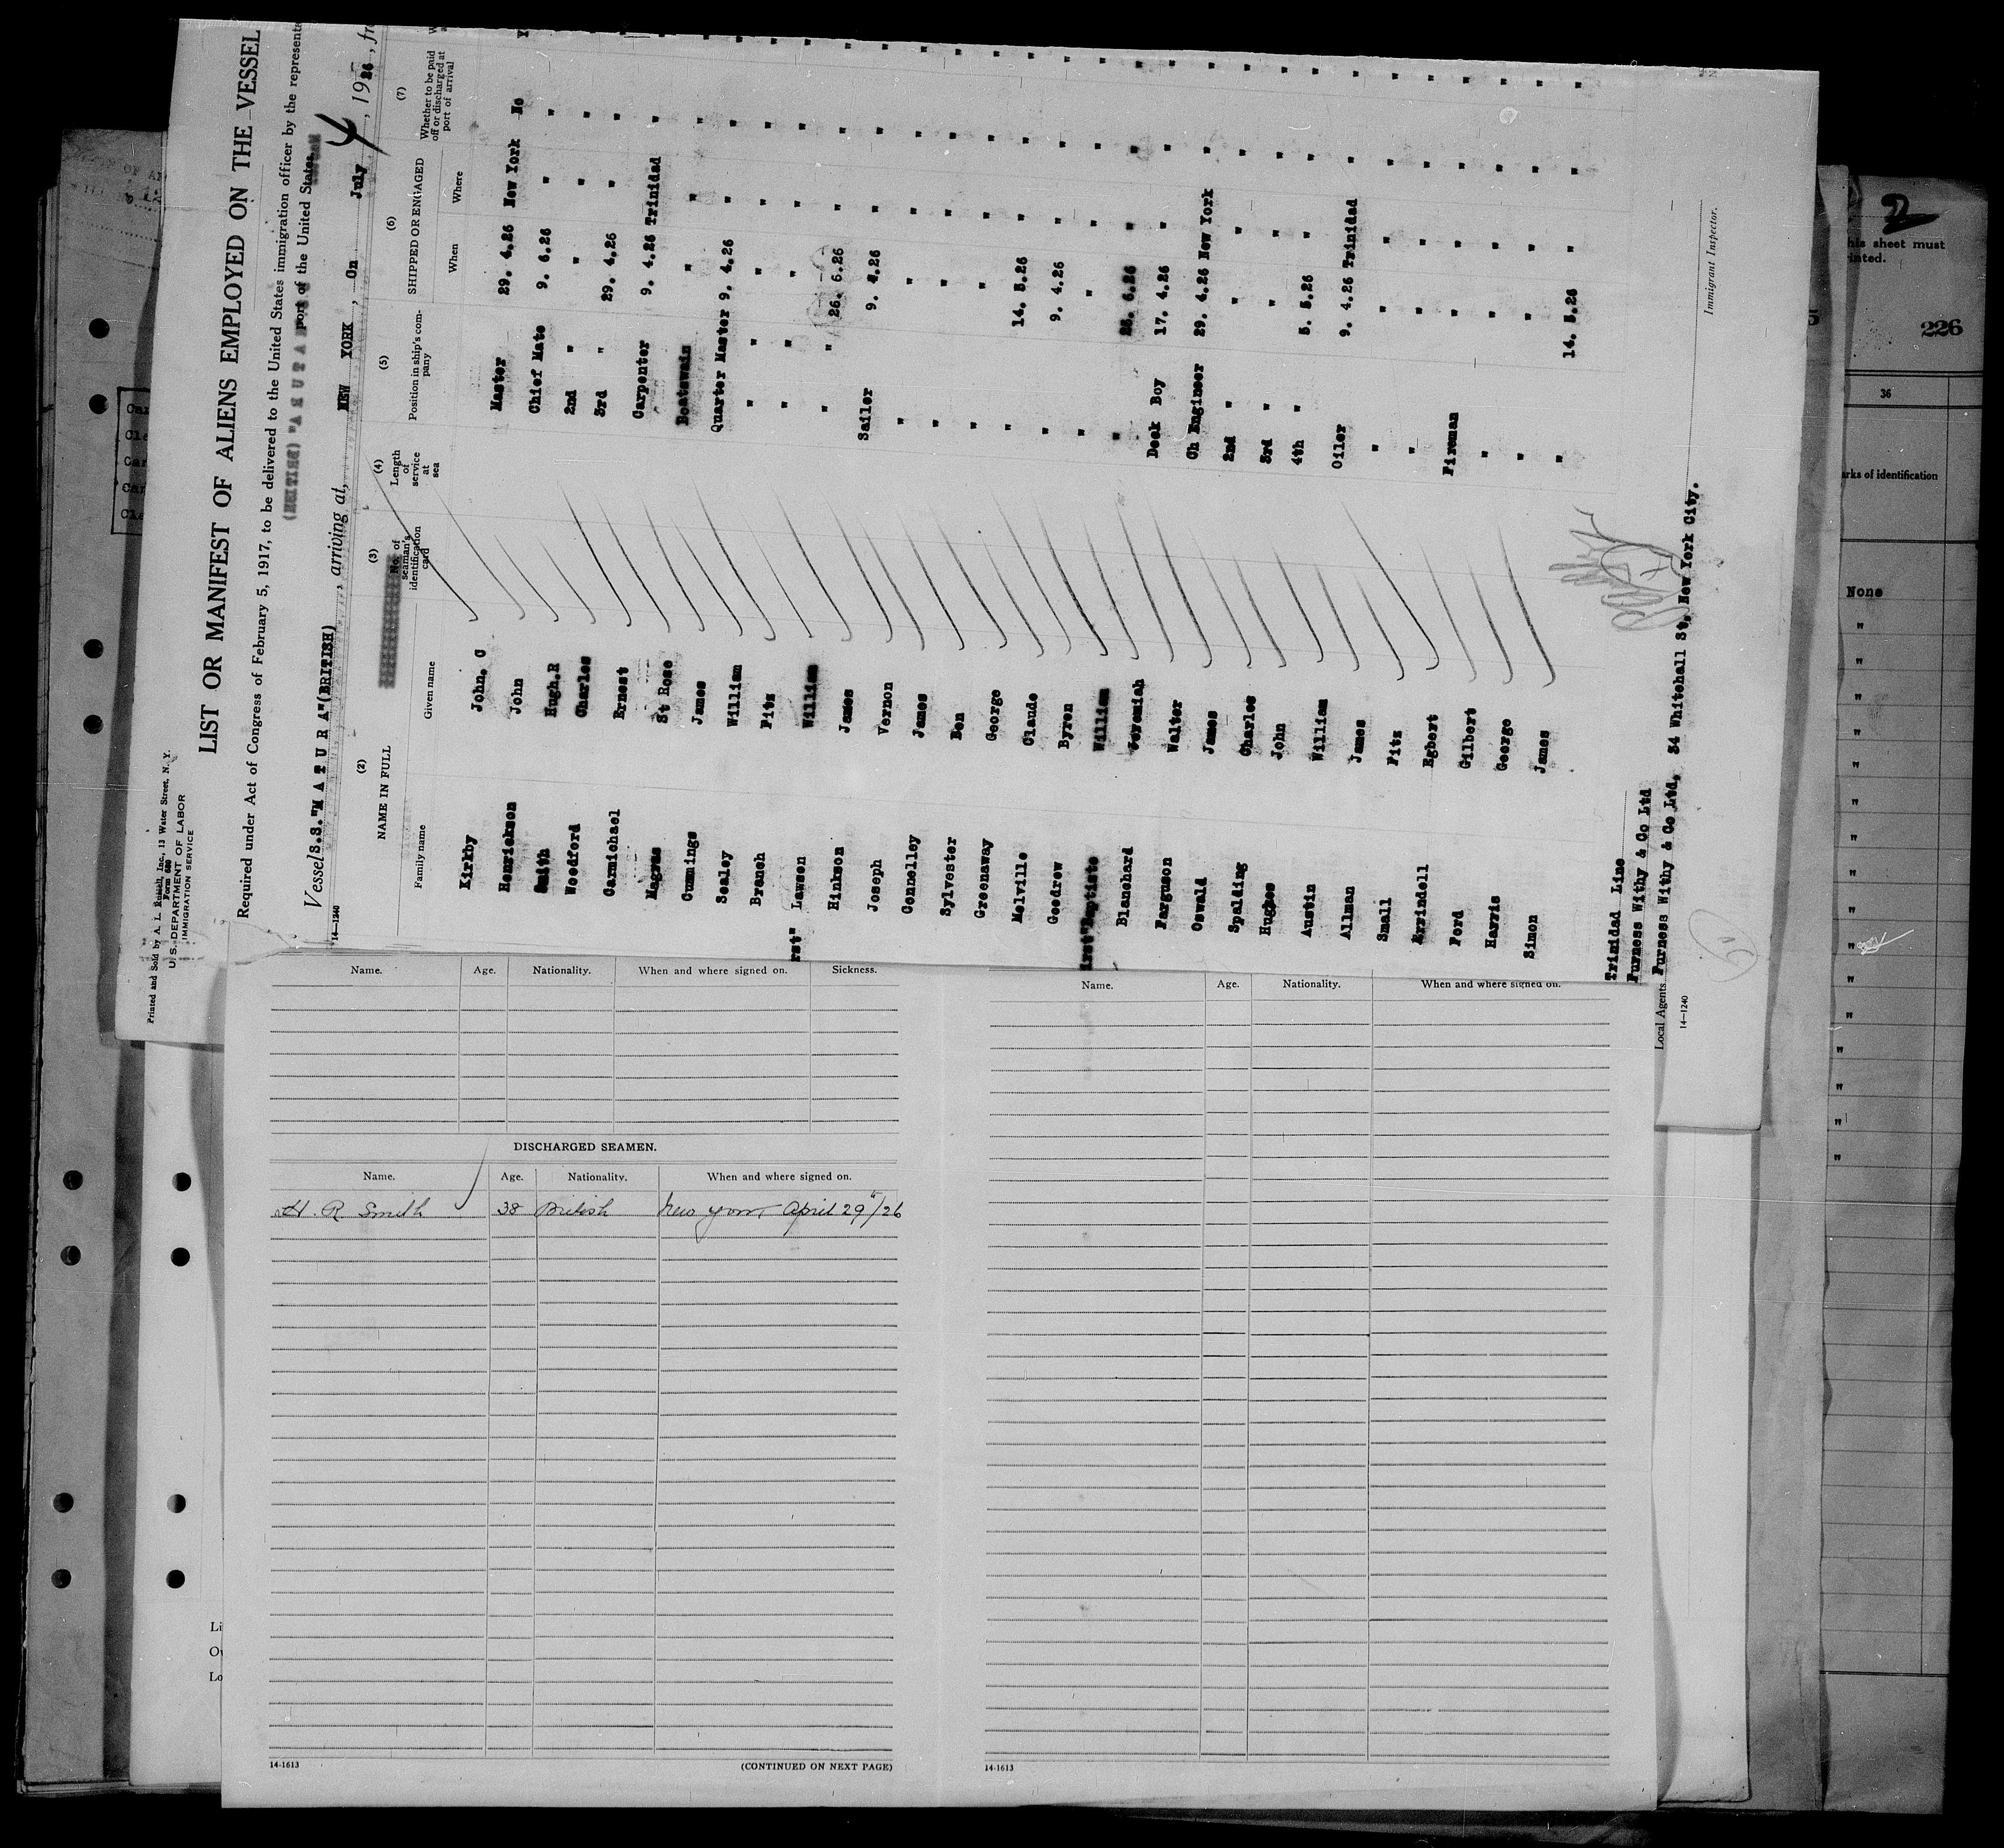 Printed and Sold by A. L. Russell, Inc., 13 Water Street, N. Y.
Form 680
U. S. DEPARTMENT OF LABOR
IMMIGRATION SERVICE
LIST OR MANIFEST OF ALIENS EMPLOYED ON THE VESSEL
Required under Act of Congress of February 5, 1917, to be delivered to the United States immigration officer by the represent
port of the United States
Vessel S.S."M A T U R A"(BRITISH), arriving at, NEW YORK, On July 4, 1926, fr
14—1240
(2) (3) (4) (5) (6) (7)
NAME IN FULL No. of seaman's identification card Length of service at sea Position in ship's company SHIPPED OR ENGAGED Whether to be paid off or discharged at port of arrival
Family name Given name When Where
Kirkby John. C Master 29. 4.26 New York No
Henrickson John Chief Mate 9. 6.26 " "
Smith Hugh.R 2nd " " " "
Woodford Charles 3rd " 29. 4.26 " "
Carmichael Ernest Carpenter 9. 4.26 Trinidad "
Magras St Rose Boatswain " " "
Cummings James Quarter Master 9. 4.26 " "
Sealey William " " " "
Branch Fitz " " " "
rst" Lawson William " 26. 6.26 " "
Hinkson James Sailor 9. 4.26 " "
Joseph Vernon " " " "
Connelley James " " " "
Sylvester Ben " " " "
Greenaway George " 14. 5.26 " "
Melville Claude " 9. 4.26 " "
Goodrew Byron " " " "
irst"Baptiste William " 26. 6.26 " "
Blanchard Jeremiah Deck Boy 17. 4.26 " "
Farguson Walter Ch Engineer 29. 4.26 New York "
Oswald James 2nd " " " "
Spalding Charles 3rd " " " "
Hughes John 4th " 5. 5.26 " "
Austin William Oiler 9. 4.26 Trinidad "
Allman James " " " "
Small Fitz " " " "
Errindell Egbert Fireman " " "
Ford Gilbert " " " "
Harris George " " " "
Simon James " 14. 5.26 " "
Trinidad Line
Furness Withy & Co Ltd
Local Agents. Furness Withy & Co Ltd, 34 Whitehall St, New York City.
14—1240
Immigrant Inspector.
Name. Age. Nationality. When and where signed on. Sickness.
DISCHARGED SEAMEN.
Name. Age. Nationality. When and where signed on.
H. R Smith 38 British New York April 29th/26
14-1613 (CONTINUED ON NEXT PAGE)
Name. Age. Nationality. When and where signed on.
14-1613
Li
Ov
Lo
2
his sheet must
inted.
226
36
rks of identification
None
"
"
"
"
"
"
"
"
"
"
"
"
"
"
"
"